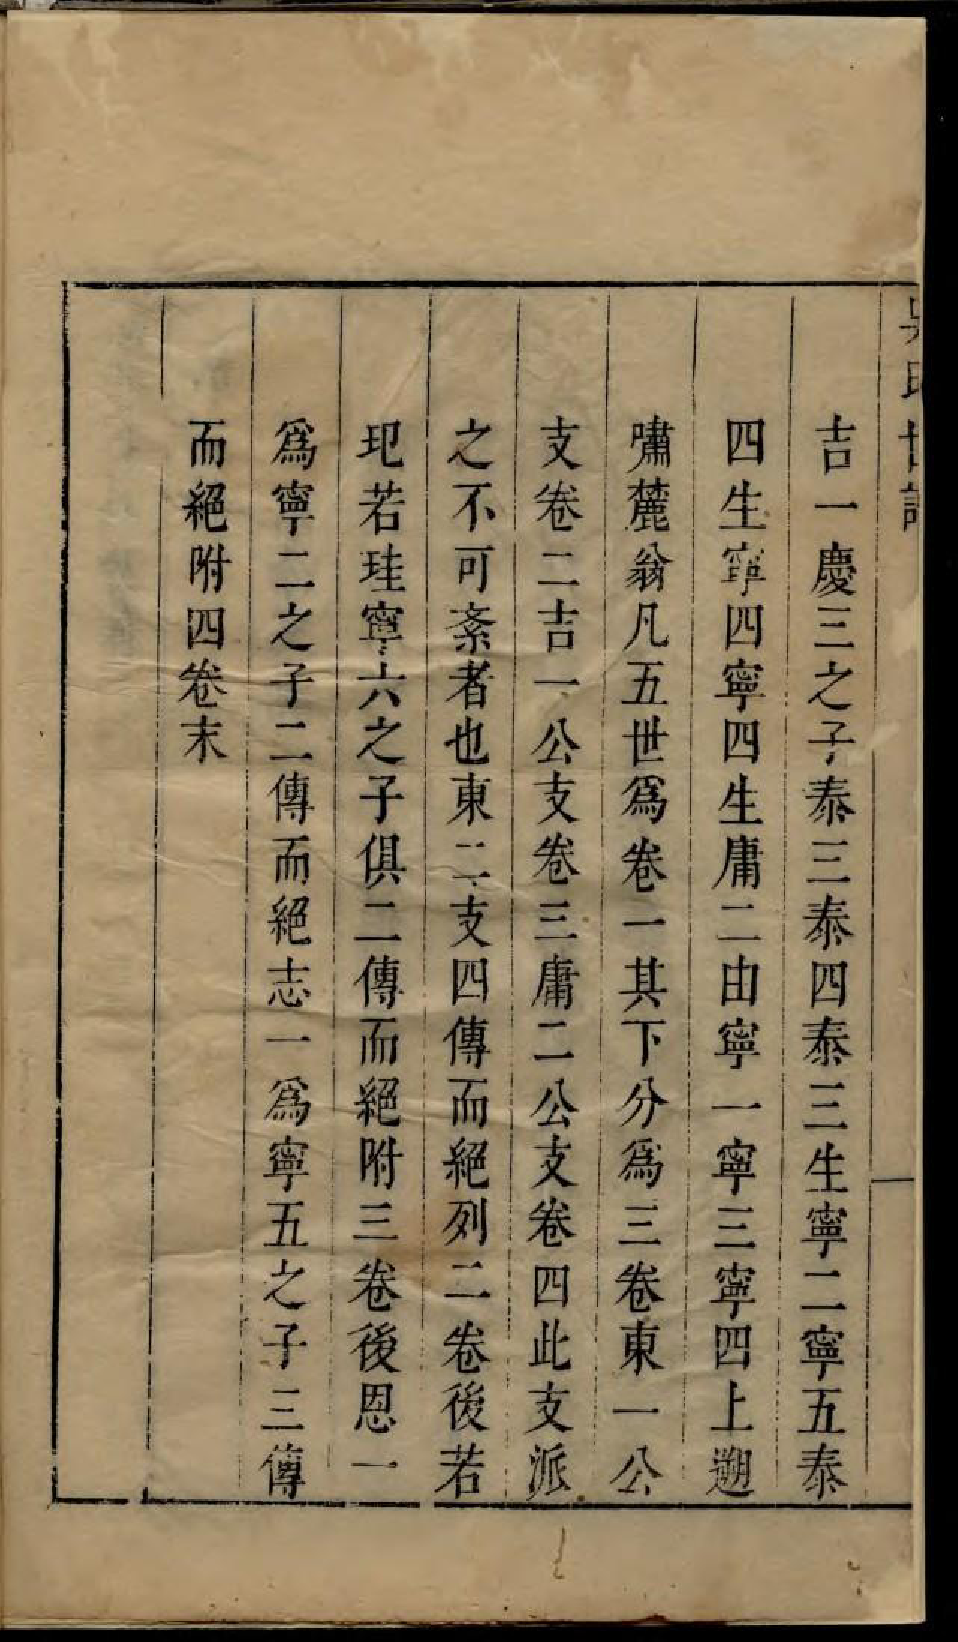 吳氏世譜
吉一慶三之子泰三泰四泰三生寧二寧五泰
四生寧四寧四生庸二由寧一寧三寧四上遡
嘯麓翁凡五世爲卷一其下分爲三卷東一公
支卷二吉一公支卷三庸二公支卷四此支派
之不可紊者也東二支四傳而絕列二卷後若
玘若珪寧六之子俱二傳而絕附三卷後恩一
爲寧二之子二傳而絕志一爲寧五之子三傳
而絕附四卷末